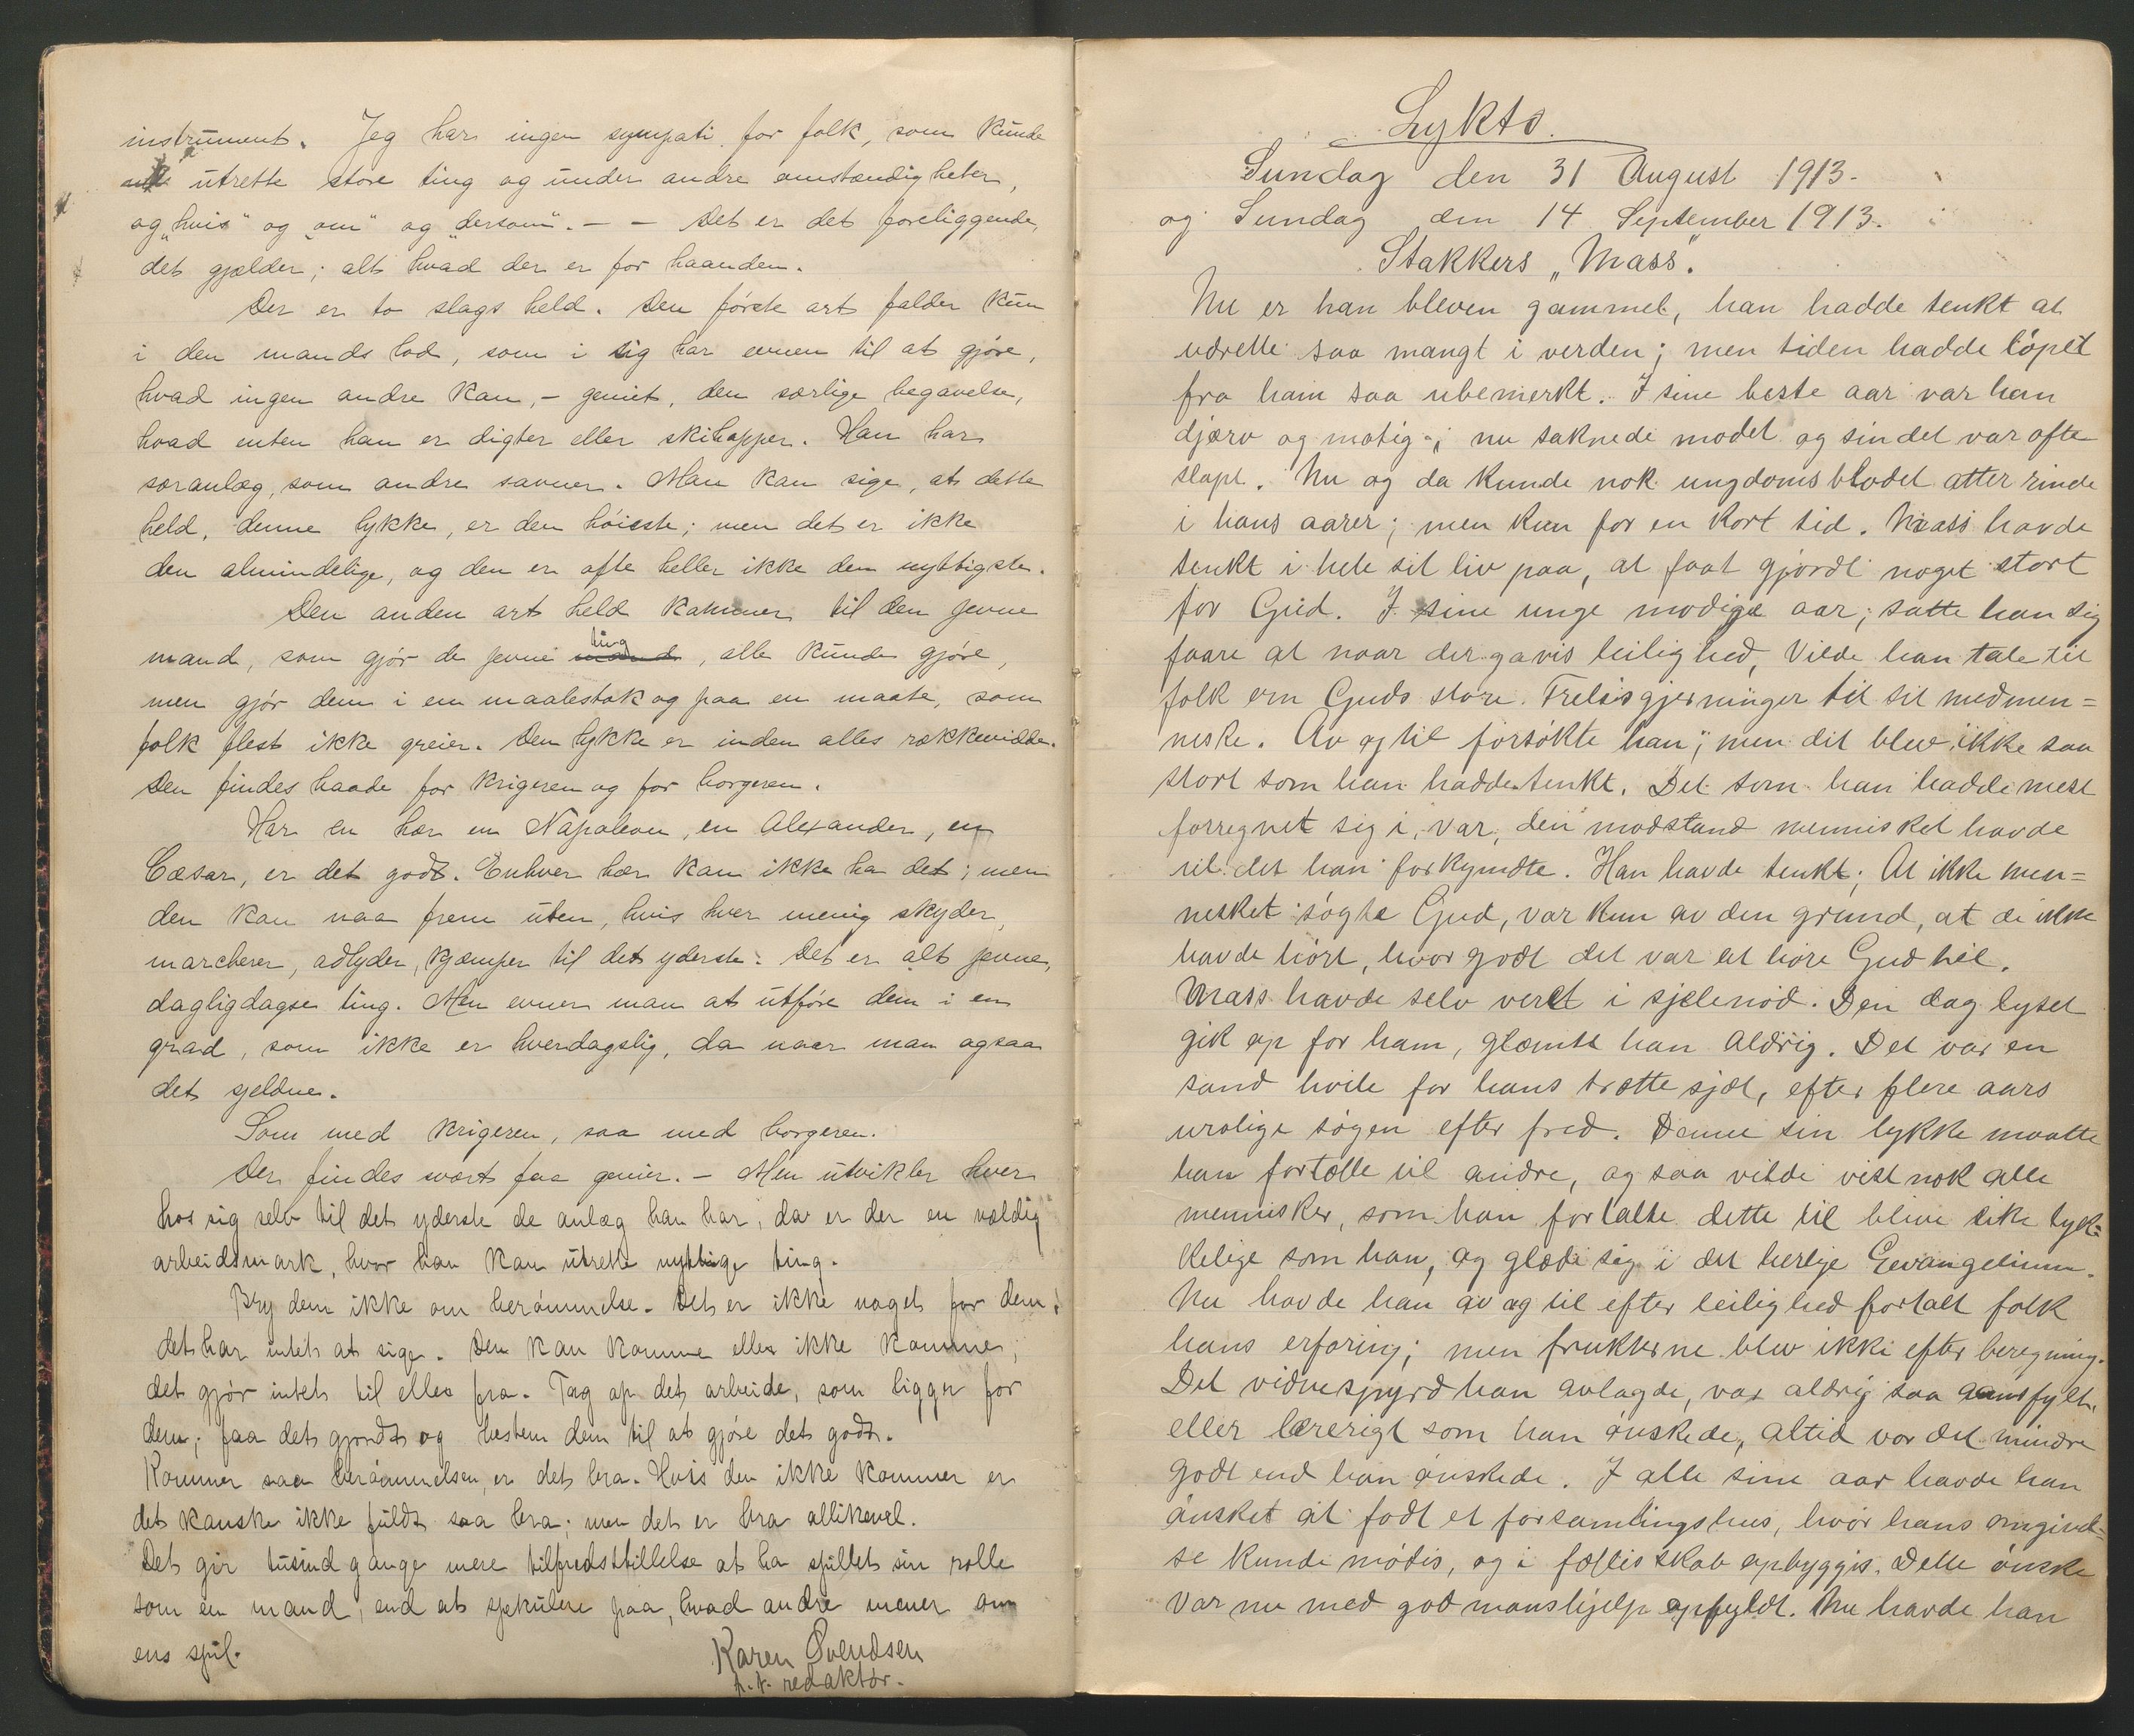 instrument. Jeg har ingen sympati for folk, som kunde
utrette store ting og under andre omstændigheter,
og „hvis" og „om" og „dersom". — — Det er det foreliggende,
det gjælder; alt hvad der er for haanden.
Der er to slags held. Den første art falder kun
i den mands lod, som i sig har evnen til at gjøre,
hvad ingen andre kan, – geniet, den særlige begavelse,
hvad enten han er digter eller skihopper. Han har
særanlæg, som andre savner. Man kan sige, at dette
held, denne lykke, er den høieste; men det er ikke
den almindelige, og den er ofte heller ikke den nyttigste.
Den anden art held kommer til den jevne
mand, som gjør de jevne ting, alle kunde gjøre,
men gjør dem i en maalestok og paa en maate, som
folk flest ikke greier. Den lykke er inden alles rækkevidde.
Den findes baade for krigeren og for borgeren.
Har en hær en Napoleon, en Alexander, en
Cæsar, er det godt. Enhver hær kan ikke ha det; men
den kan naa frem uten, hvis hver menig skyder,
marcherer, adlyder, kjæmper til det yderste. Det er alt jevne,
dagligdagse ting. Men evner man at utføre dem i en
grad, som ikke er hverdagslig, da naar man ogsaa
det sjeldne.
Som med krigeren, saa med borgeren.
Der findes svært faa genier. – Men utvikler hver
hos sig selv til det yderste de anlæg han har, da er der en vældig
arbeidsmark, hvor han kan utrette nyttige ting.
Bry dem ikke om berømmelse. Det er ikke noget for dem;
det har intet at sige. Den kan komme eller ikke komme,
det gjør intet til eller fra. Tag op det arbeide, som ligger for
dem; faa det gjordt og bestem dem til at gjøre det godt.
Kommer saa berømmelsen, er det bra. Hvis den ikke kommer er
det kanske ikke fuldt saa bra; men det er bra allikevel.
Det gir tusind gange mere tilfredsstillelse at ha spillet sin rolle
som en mand, end at spekulere paa, hvad andre mener om
ens spil.
Karen Svendsen
p.t. redaktør.
Lykto.
Sundag den 31 August 1913.
og Sundag den 14 September 1913.
Stakkers „Mass".
Nu er han bleven gammel, han hadde tenkt at
udrette saa mangt i verden; men tiden hadde løpet
fra ham saa ubemerkt. I sine beste aar var han
djærv og motig; nu saknede modet og sindet var ofte
slapt. Nu og da kunde nok ungdomsblodet atter rinde
i hans aarer; men kun for en kort tid. Mass havde
tenkt i hele sit liv paa, at faat gjordt noget stort
for Gud. I sine unge modige aar; satte han sig
faare at naar der gavis leilighed, Vilde han tale til
folk om Guds store Frelsisgjerninger til sit medmen=
neske. Av og til forsøkte han; men dit blev ikke saa
stort som han hadde tenkt. Det som han hadde mest
forregnet sig i, var, den modstand mennisket havde
til det han forkyndte. Han havde tenkt; At ikke men=
nesket søgte Gud, var kun av den grund, at de ikke
havde hørt, hvor godt det var at høre Gud til.
Mass havde selv veret i sjelenød. Den dag lyset
gik op for ham, glæmte han aldrig. Det var en
sand hvile for hans trætte sjæl, efter flere aars
urolige søgen efter fred. Denne sin lykke maatte
han fortælle til andre, og saa vilde vist nok alle
mennisker, som han fortalte dette til blive like lyk=
kelige som han, og glæde sig i det herlige Evangelium.
Nu havde han av og til efter leilighed fortalt folk
hans erfaring; men frukterne blev ikke efter beregning.
Det vidnespyrd han avlagde, var aldrig saa aandsfylt,
eller lærerigt som han ønskede, altid var det mindre
godt end han ønskede. I alle sine aar havde han
ønsket at fådt et forsamlingshus, hvor hans omgivel=
se kunde mødis, og i fællisskab opbyggis. Dette ønske
var nu med god manshjelp opfyldt. Nu havde han